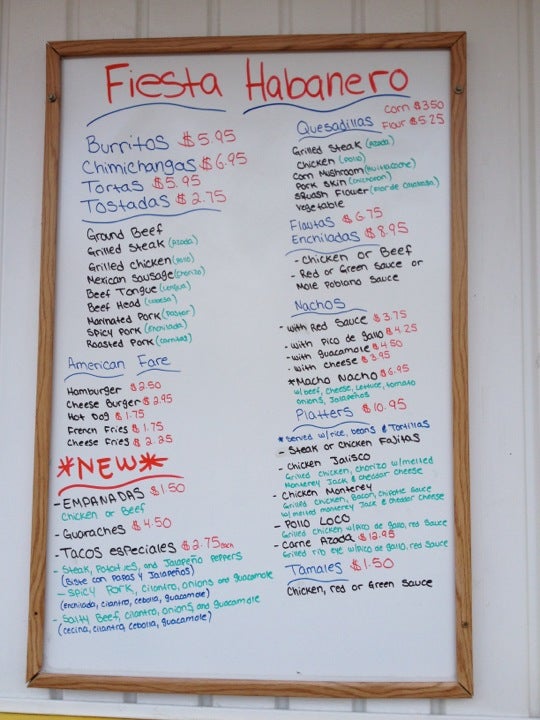 Fiesta Habanero
Burritos $5.95
Chimichangas $6.95
Tortas $5.95
Tostadas $2.75
Ground Beef
Grilled Steak (Azada)
Grilled Chicken (Pollo)
Mexican Sausage (Chorizo)
Beef Tongue (Lengua)
Beef Head (Cabeza)
Marinated Pork (Pastor)
Spicy Pork (Enchilada)
Roasted Pork (Carnitas)
American Fare
Hamburger $2.50
Cheese Burger $2.95
Hot Dog $1.75
French Fries $1.75
Cheese Fries $2.25
*NEW*
- EMPANADAS $1.50
Chicken or Beef
- Guaraches $4.50
- Tacos especiales $2.75 each
- Steak, Potatoes, and Jalapeño Peppers
(Biste con Papas y Jalapeños)
- Spicy Pork, cilantro, onions and guacamole
(enchilada, cilantro, cebolla, guacamole)
- Salty Beef, cilantro, onions, and guacamole
(cecina, cilantro, cebolla, guacamole)
Quesadillas Corn $3.50
Flour $5.25
Grilled Steak (Azada)
Chicken (Pollo)
Corn Mushroom (Huitlacoche)
Pork Skin (Chicharon)
Squash Flower (Flor de Calabasa)
Vegetable
Flautas $6.75
Enchiladas $8.95
- Chicken or Beef
- Red or Green Sauce or
Mole Poblano Sauce
Nachos
- with Red Sauce $3.75
- with Pico de Gallo $4.25
- with guacamole $4.50
- with cheese $3.95
*Macho Nacho $6.95
w/beef, Cheese, Lettuce, tomato
onions, Jalapeños
Platters $10.95
*Served w/rice, beans & Tortillas
- Steak or Chicken Fajitas
- Chicken Jalisco
Grilled Chicken, Chorizo w/melted
Monterey Jack & cheddar Cheese
- Chicken Monterey
Grilled Chicken, Bacon, Chipotle Sauce
w/melted monterey Jack & cheddar Cheese
- Pollo Loco
Grilled Chicken w/Pico de Gallo, red Sauce
- Carne Azada $12.95
Grilled rib eye w/Pico de Gallo, red Sauce
Tamales $1.50
Chicken, red or Green Sauce